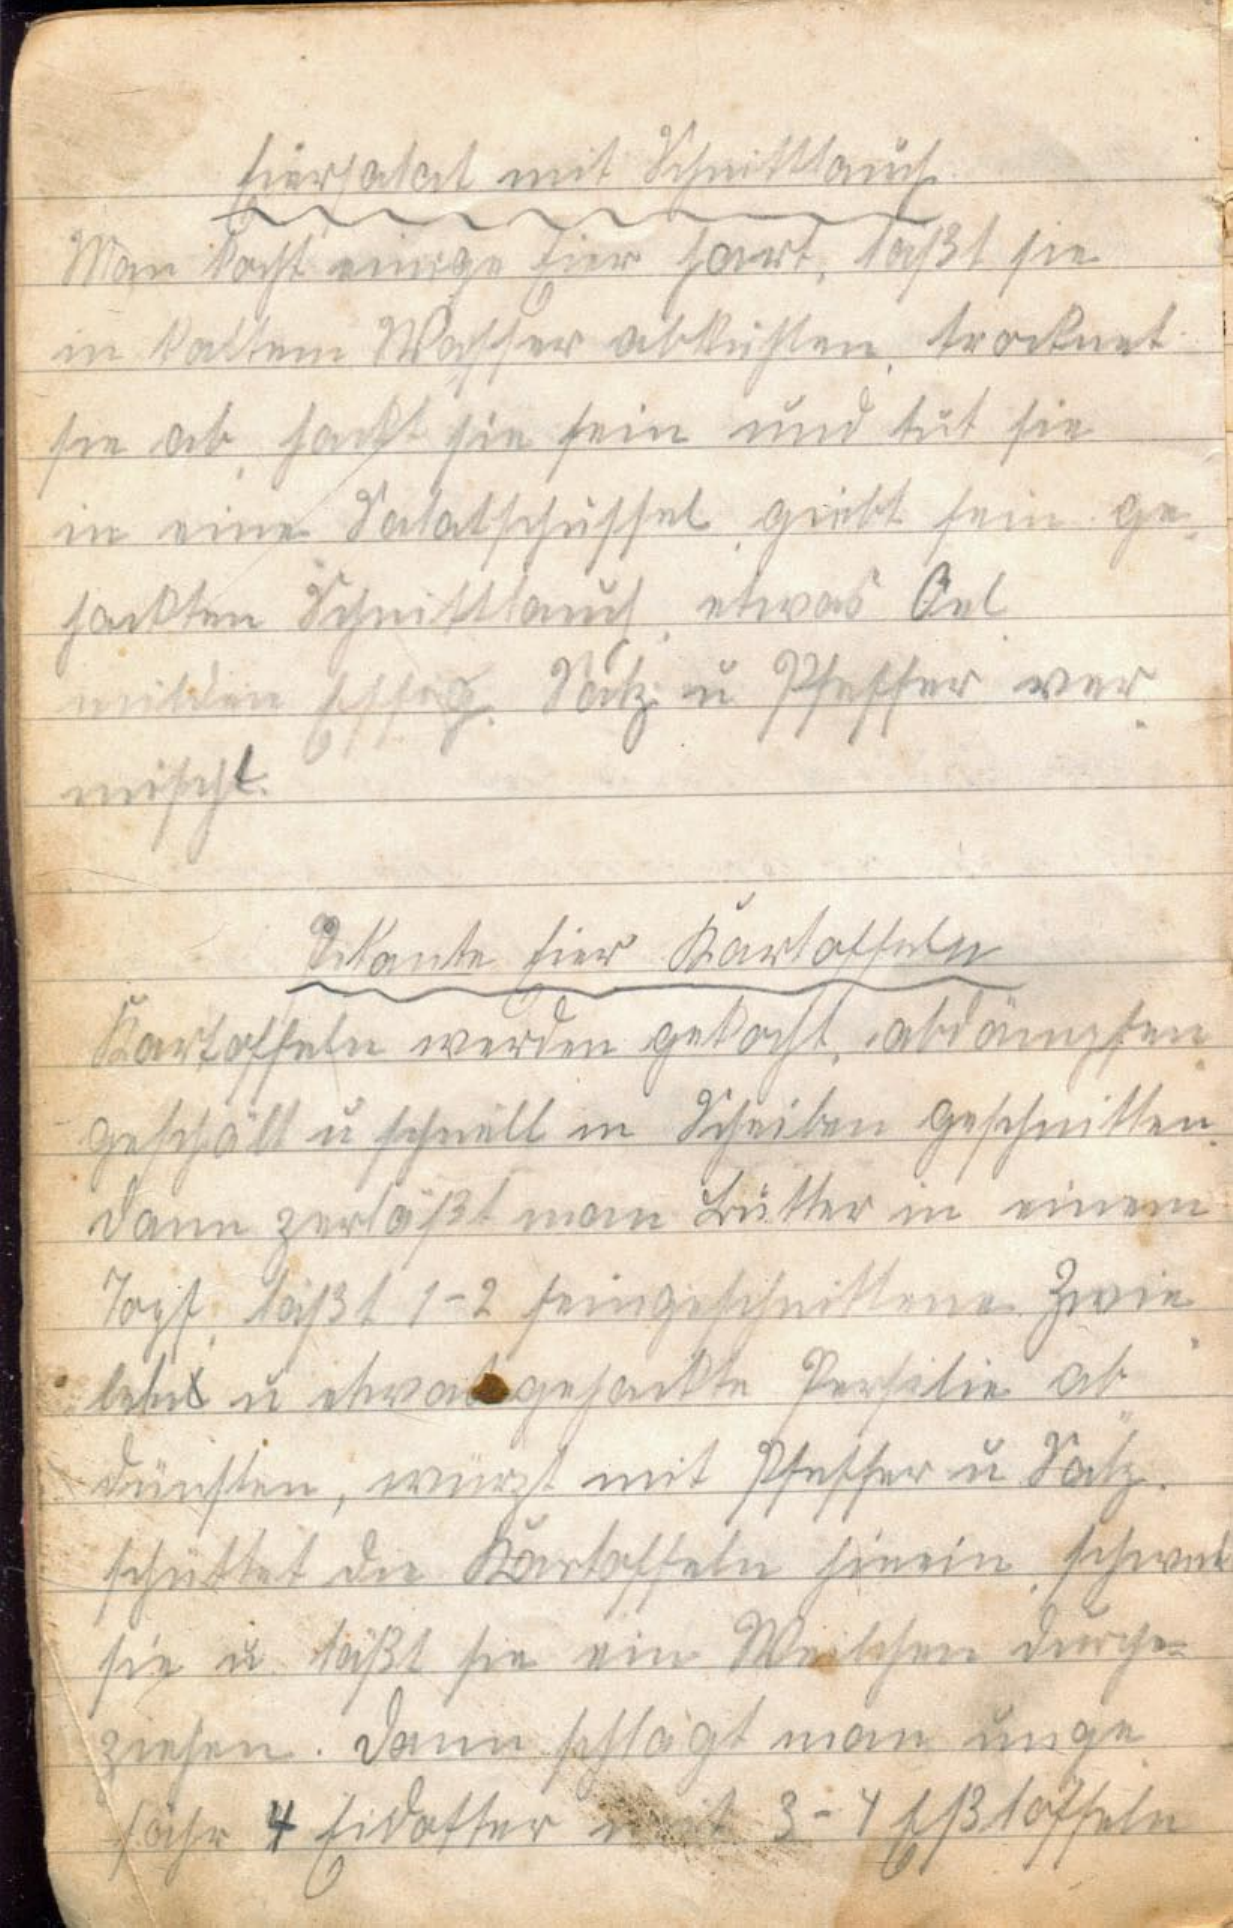 Eiersalat mit Schnittlauch
Man kocht einige Eier hart, läßt sie
in kaltem Wasser abkühlen, trocknet
sie ab, hackt sie fein und tut sie
in eine Salatschüssel, giebt fein ge-
hackten Schnittlauch, etwas Oel
milden Essig, Salz u Pfeffer ver-
mischt.
Pikante Eier Kartoffeln
Kartoffeln werden gekocht, abdämpfen
geschält u schnell in Scheiben geschnitten
dann zerläßt man Butter in einem
Topf, läßt 1-2 feingeschnittene Zwie-
beln u etwas gehackte Persilie ab-
dünsten, würzt mit Pfeffer u Salz.
schüttet die Kartoffeln hinein,
sie u läßt sie ein Weilchen durch-
ziehen. Dann schlägt man unge-
fähr 4 Eidotter mit 3-4 Eßlöffeln